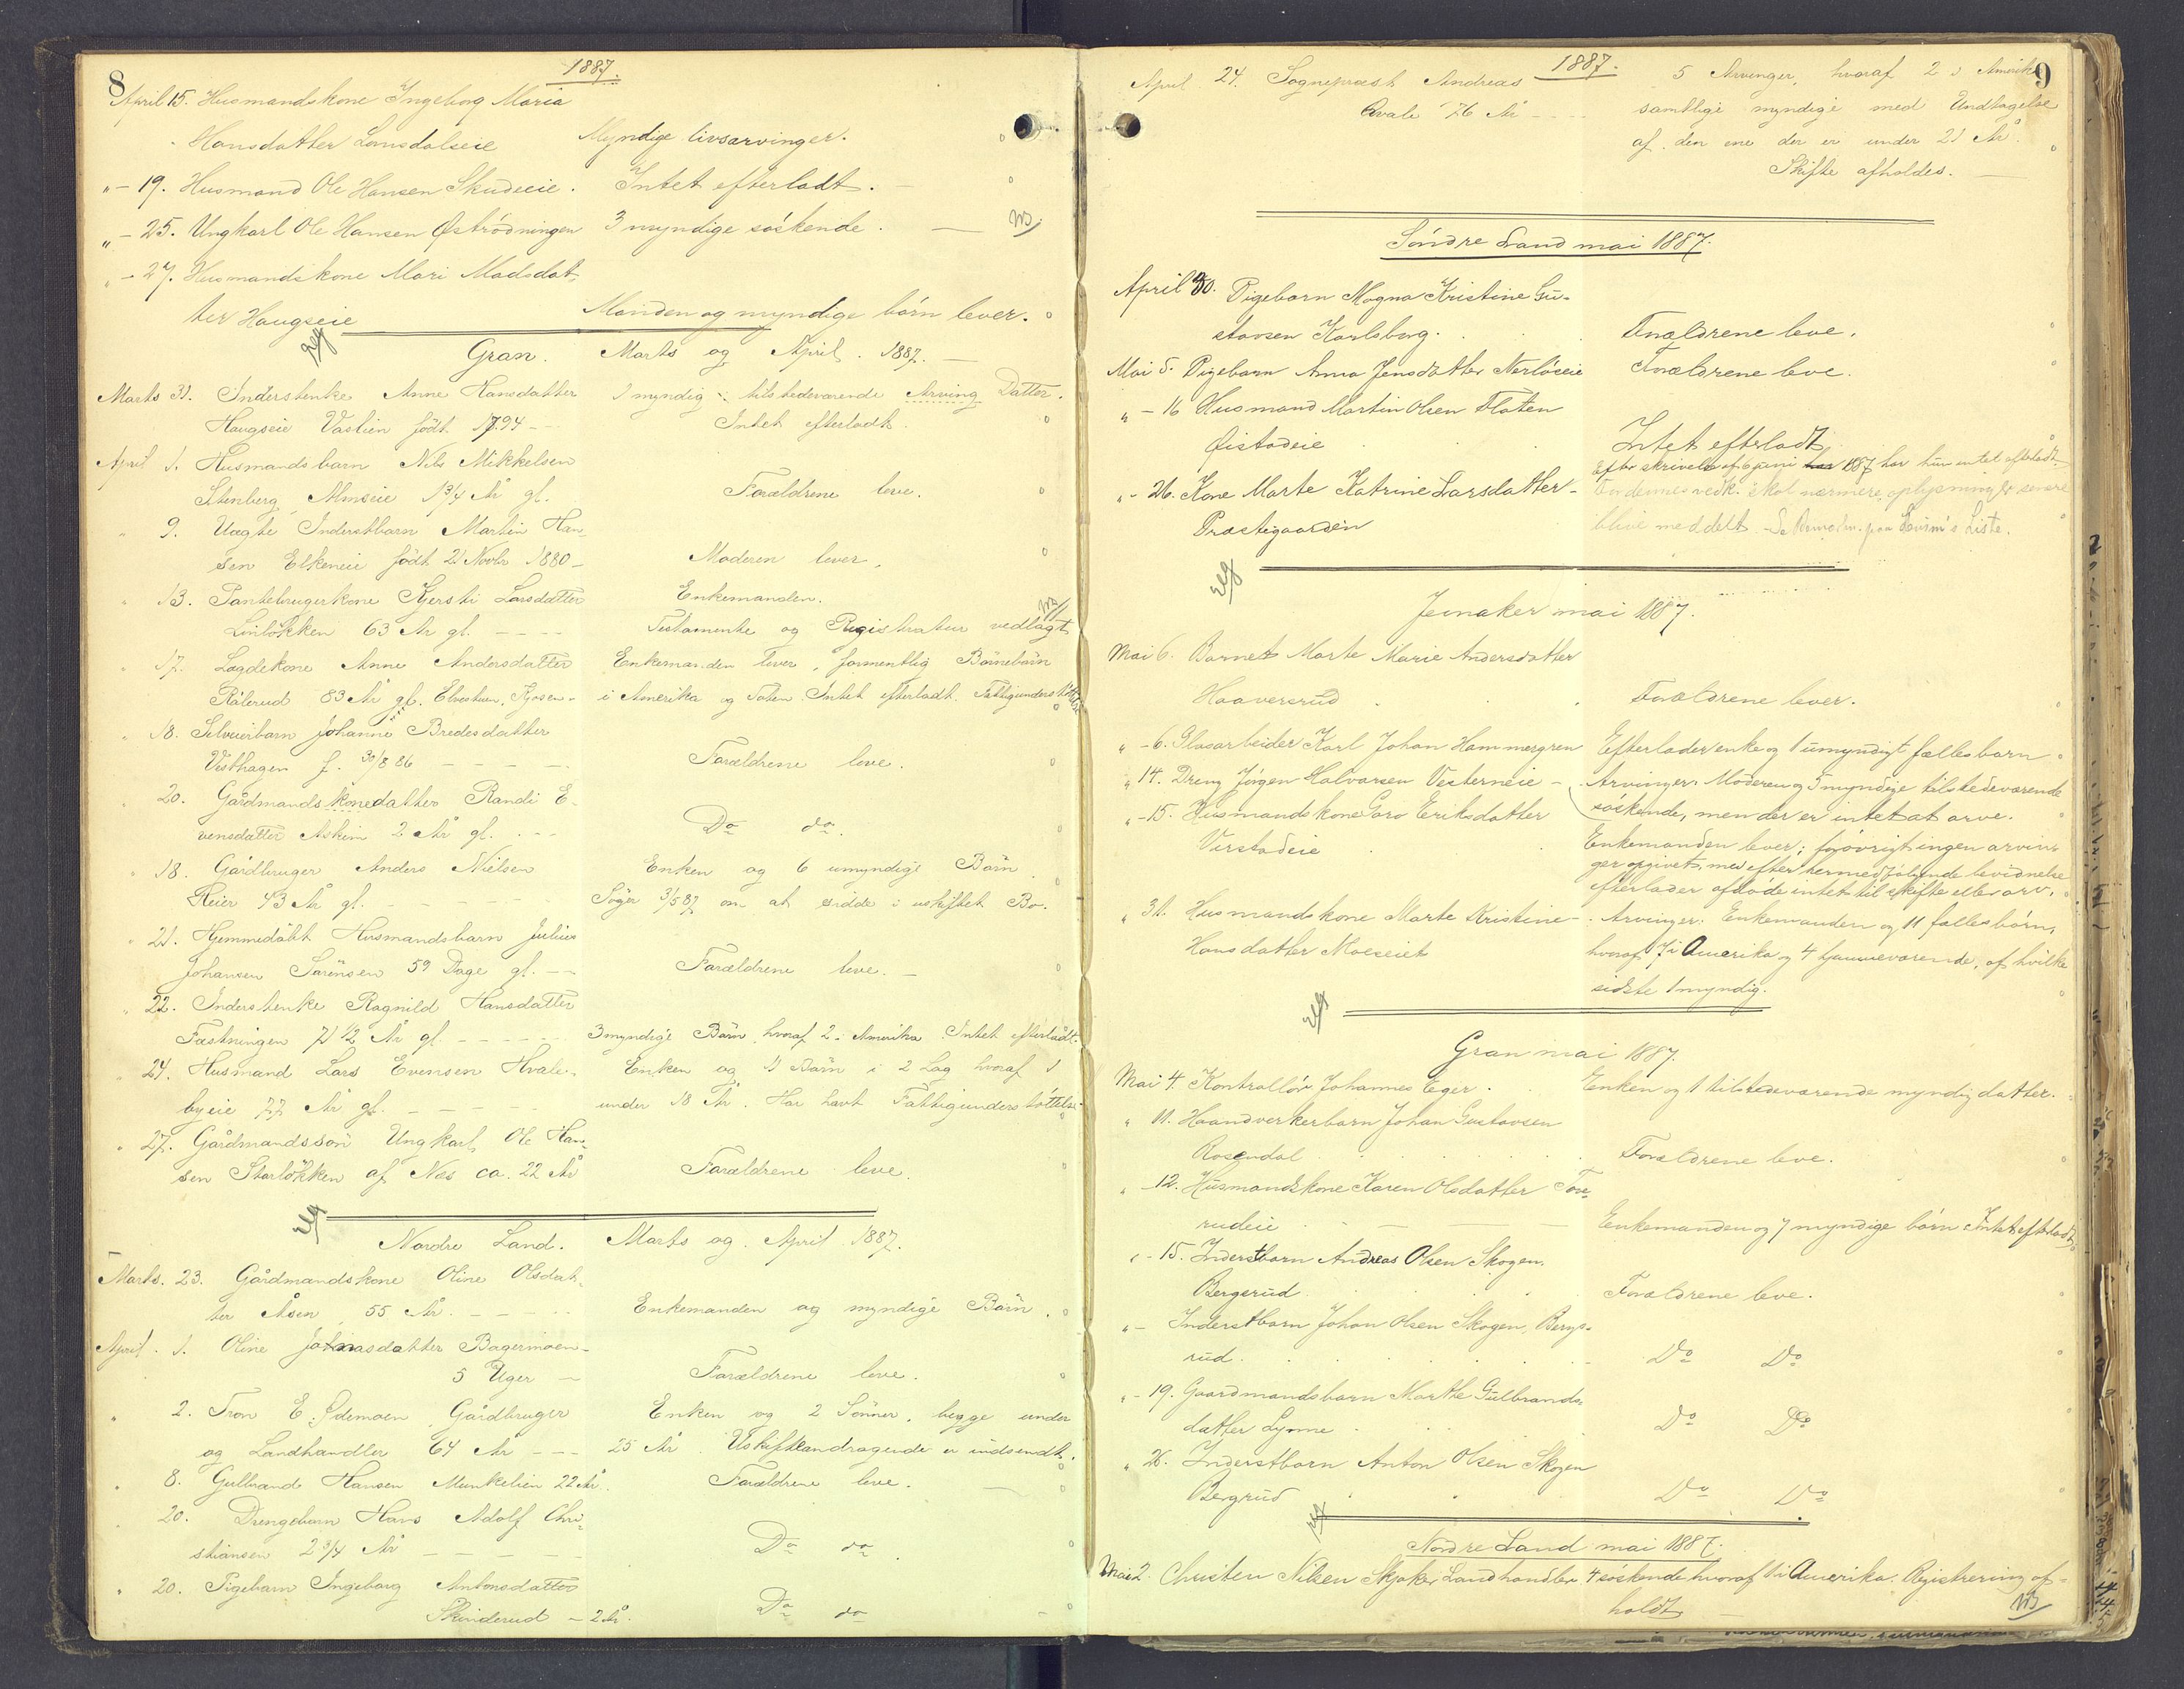 8
1887.
April 15. Husmandskone Ingeborg Maria
Hansdatter Lomsdalseie Myndige livsarvinger.
" - 19. Husmand Ole Hansen Skudeeie. Intet efterladt.
" - 25. Ungkarl Ole Hansen Øströdningen 3 myndige söskende. NB
" - 27. Husmandskone Mari Madsdat-
ter Haugseie Manden og myndige börn lever.
Gran. Marts og April 1887.
Marts 31. Inderstenke Anne Hansdatter 1 myndig tilstedeværende Arving Datter.
Haugseie Vaslien född 1794 - Intet efterladt.
April 1. Husmandsbarn Nils Mikkelsen
Stenberg, Almseie 1 3/4 År gl. Forældrene leve.
" 9. Uægte Inderstbarn Martin Han-
sen Elkeneie född 21 Novbr 1880 - Moderen lever.
" 13. Pantebrugerkone Kjersti Larsdatter Enkemanden. NB
Linlökken 63 År gl. Testamente og Registratur vedlagt
" 17. Lægdekone Anne Andersdatter Enkemanden lever, formentlig Börnebörn
Rålerud 83 År gl. i Amerika og Toten. Intet efterladt.
" 18. Selveierbarn Johanne Bredesdatter
Visthagen f. 30/8 86 Forældrene leve.
" 20. Gårdmandskonedatter Randi E-
vensdatter Askim 2 År gl. Do do.
" 18. Gårdbruger Anders Nielsen Enken og 6 umyndige Börn.
Reier 43 År gl. Söger 3/5 87 om at sidde i uskiftet Bo.
" 21. Hjemmedöbt Husmandsbarn Julius
Johansen Sörensen 59 Dage gl. Forældrene leve.
" 22. Inderstenke Ragnild Hansdatter
Fæstningen 71 1/2 År gl. 3 myndige Börn hvoraf 2 i Amerika. Intet efterladt.
" 24. Husmand Lars Evensen Hvale- Enken og 11 Börn i 2 Lag hvoraf 1
byeie 77 År gl. under 18 År. Har havt Fattigunderstöttelse
" 27. Gårdmandssön Ungkarl Ole Han-
sen Starlökken af Næs ca. 22 År Forældrene leve.
Nordre Land. Marts og April 1887.
Marts. 23. Gårdmandskone Oline Olsdat-
ter Åsen 55 År. Enkemanden og myndige Börn.
April. 1. Oline Johnasdatter Bagermoen -
5 Uger - Forældrene leve.
" 2. Tron E. Ødemoen Gårdbruger Enken og 2 Sönner, begge under
og Landhandler 64 År 25 År Uskifteandragende er indsendt.
" 8. Gulbrand Hansen Munkelien 22 År. Forældrene leve.
20. Drengebarn Hans Adolf Chri-
stiansen 2 3/4 År Do do.
" 20. Pigebarn Ingeborg Antonsdatter
Skinderud - 2 År. Do do
9
1887.
April 24. Sogneprest Andreas 5 Arvinger, hvoraf 2 i Amerika
Qvale 76 År samtlige myndige med Undtagelse
af den ene der er under 21 År.
Skifte afholdes.
Söndre Land mai 1887.
April 30. Pigebarn Magna Kristine Gu-
stavsen Karlsberg. Forældrene leve.
Mai 5. Pigebarn Anna Jensdatter Nerlöseie Forældrene leve.
" - 16 Husmand Martin Olsen Flaten
Øistadeie Intet efterladt
Efter skrivelse af 6 juni 1887 har hun intet efterladt
" - 26. Kone Marte Katrine Larsdatter - Fordennes vedk. skal nærmere oplysninger senere
Præstegaarden blive meddelt - paa Liste.
Jevnaker mai 1887.
Mai 6. Barnet Marte Marie Andersdatter
Haaversrud Forældrene lever.
" - 6. Glasarbeider Karl Johan Hammergren Efterlader enke og 1 umyndigt fællesbarn
" 14. Dreng Jörgen Halvorsen Vesterneie - Arvinger: Moderen og 5 myndige tilstedeværende
söskende, men der er intet at arve.
" - 15. Husmandskone Goro Eriksdatter
Virstadeie Enkemanden lever; forövrigt ingen arvin-
ger opgivet, med efter hermed fölgende bevidnelse
efterlader afdöde intet til skifte eller arv.
" 31. Husmandskone Marte Kristine - Arvinger: Enkemanden og 11 fællesbörn,
Hansdatter Moeseiet hvoraf 7 i Amerika og 4 hjemmeværende, af hvilke
sidste 1 myndig.
Gran mai 1887.
Mai 4. Kontrollör Johannes Eger. Enken og 1 tilstedeværende myndig datter.
" 11. Haandverkerbarn Johan Gustavsen
Rosendal Forældrene leve.
" - 12. Husmandskone Karen Olsdatter Tore-
rudeie Enkemanden og 7 myndige börn. Intet efterladt
" - 15. Inderstbarn Andreas Olsen Skogen,
Bergsrud. Forældrene leve.
" - Inderstbarn Johan Olsen Skogen, Bergs-
rud. Do Do
" - 19. Gaardmandsbarn Marthe Gulbrands-
datter Lynne Do Do
" 26. Inderstbarn Anton Olsen Skogen
Bergrud Do Do
Nordre Land mai 1887.
Mai 2. Christen Nilsen Skjaker Landhandler 4 söskende hvoraf 1 i Amerika. Registrering af-
holdt NB